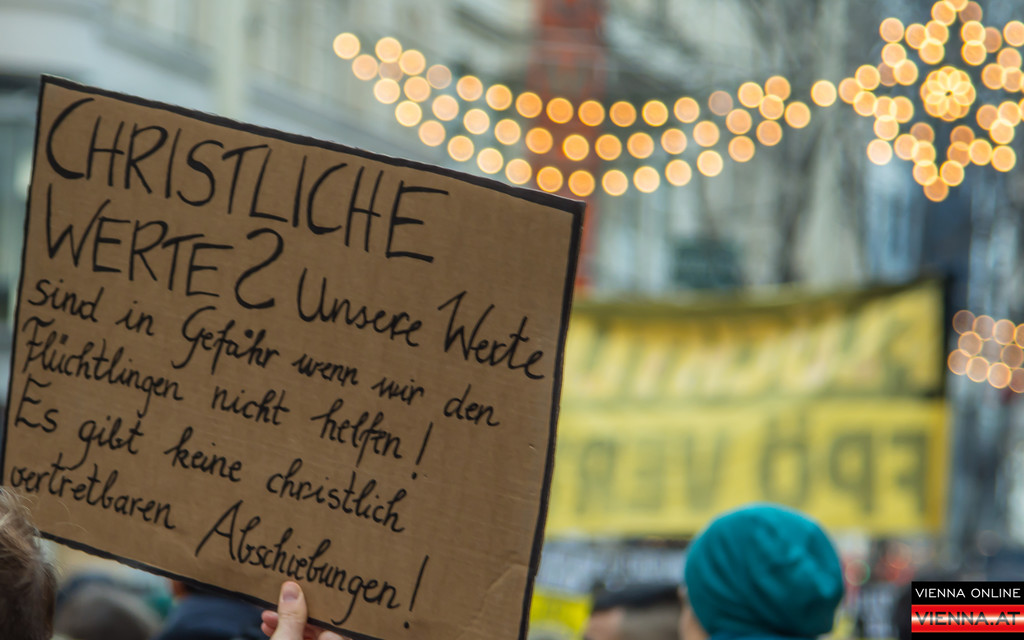 CHRISTLICHE
WERTE? Unsere Werte
sind in Gefahr wenn wir den
Flüchtlingen nicht helfen!
Es gibt keine christlich
vertretbaren Abschiebungen!
FPÖ VER
VIENNA ONLINE
VIENNA.AT